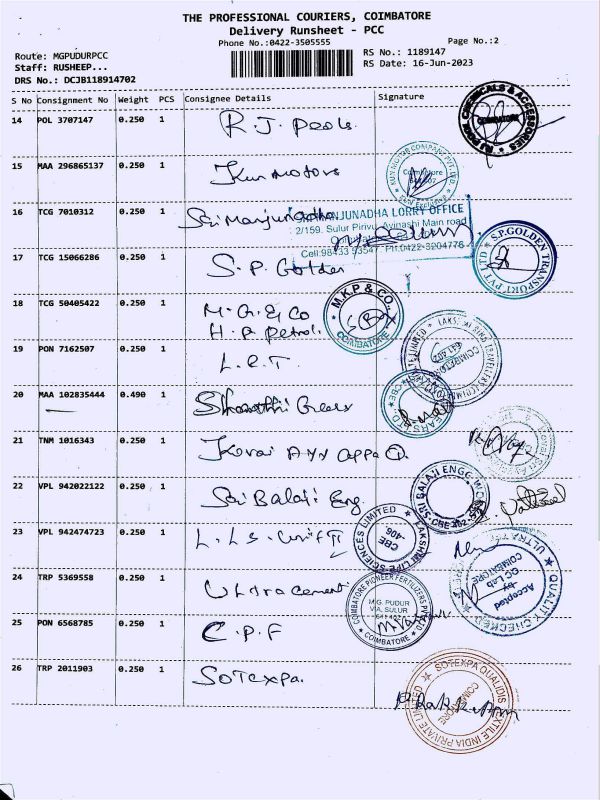 THE PROFESSIONAL COURIERS, COIMBATORE
Delivery Runsheet - PCC
Phone No.:0422-3505555
Page No.:2
Route: MGPUDURPCC
RS No.: 1189147
Staff: RUSHEEP...
RS Date: 16-Jun-2023
DRS No.: DCJB118914702
S No Consignment No Weight PCS Consignee Details Signature
14 POL 3707147 0.250 1 R.J. Pools
CHEMICALS & ACCESSORIES
COIMBATORE
15 MAA 296865137 0.250 1 Kun Motors
KUN MOTOR COMPANY PVT. LTD.
Coimbatore
16 TCG 7010312 0.250 1 Sri Manjunadha
MANJUNADHA LORRY OFFICE
2/159, Sulur Pirivu, Avinashi Main road
Cell:98433 53547 Ph:0422-3204776
17 TCG 15066286 0.250 1 S.P. Golden
S.P.GOLDEN TRANSPORT PVT LTD
18 TCG 50405422 0.250 1 M.G. & Co
H.P Petrol.
M.K.P & CO.,
COIMBATORE
19 PON 7162507 0.250 1 L.R.T.
COIMBATORE
641 402
20 MAA 102835444 0.490 1 Gears
GEARS LTD
CBE
21 TNM 1016343 0.250 1 Kovai Ayyappa
22 VPL 942022122 0.250 1 Sri Balaji Eng.
SRI BALAJI ENGG.
23 VPL 942474723 0.250 1 L.L.S. Unit II
LAKSHMI LIFE SCIENCES LIMITED
CBE
-406
24 TRP 5369558 0.250 1 Ultra Cement
ULTRATECH
COIMBATORE
QUALITY CHECKED
Accepted
by
QC Lab
25 PON 6568785 0.250 1 C.P.F
COIMBATORE PIONEER FERTILIZERS PVT LTD
M.G. PUDUR
VIA. SULUR
COIMBATORE
26 TRP 2011903 0.250 1 Sotexpa.
SOTEXPA QUALIDIS TEXTILE INDIA PRIVATE LIMITED
COIMBATORE